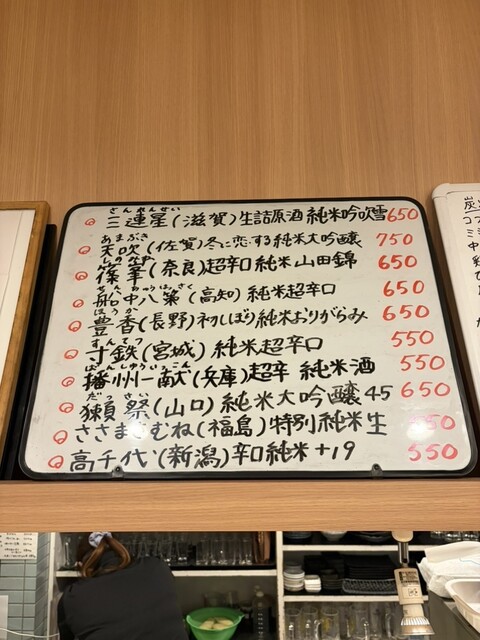 さんれんせい
三連星(滋賀)生詰原酒 純米吟吹雪 650
あまぶき
天吹(佐賀)冬に恋する純米大吟醸 750
しのみね
篠峯(奈良)超辛口純米山田錦 650
せんちゅうはっさく
船中八策(高知)純米超辛口 650
ほうか
豊香(長野)初しぼり純米おりがらみ 650
すんてつ
寸鉄(宮城)純米超辛口 550
ばんしゅういっこん
播州一献(兵庫)超辛 純米酒 550
だっさい
獺祭(山口)純米大吟醸45 650
ささまさむね(福島)特別純米生
高千代(新潟)辛口純米+19 550
炭
コ
ミ
中